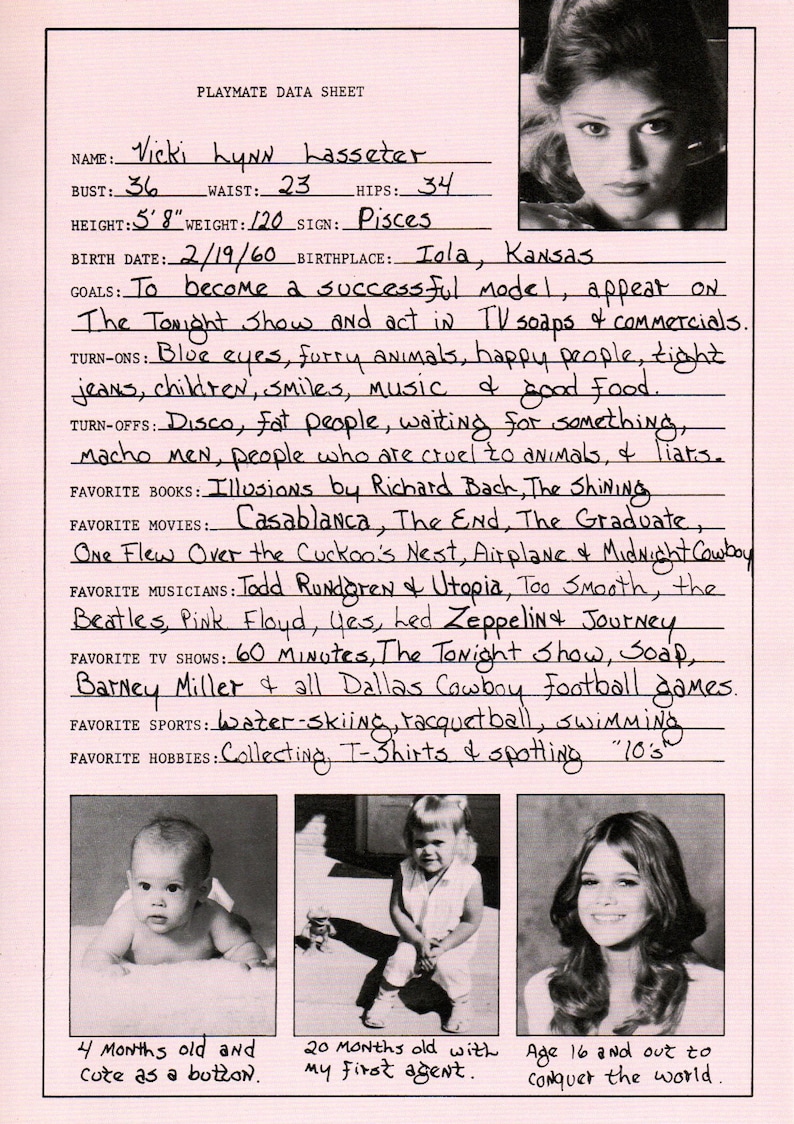 PLAYMATE DATA SHEET
NAME: Vicki Lynn Lasseter
BUST: 36 WAIST: 23 HIPS: 34
HEIGHT: 5' 8" WEIGHT: 120 SIGN: Pisces
BIRTH DATE: 2/19/60 BIRTHPLACE: Iola, Kansas
GOALS: To become a successful model, appear on
The Tonight Show and act in TV soaps & commercials.
TURN-ONS: Blue eyes, furry animals, happy people, tight
jeans, children, smiles, music & good food.
TURN-OFFS: Disco, fat people, waiting for something,
macho men, people who are cruel to animals, & liars.
FAVORITE BOOKS: Illusions by Richard Bach, The Shining
FAVORITE MOVIES: Casablanca, The End, The Graduate,
One Flew Over the Cuckoo's Nest, Airplane & Midnight Cowboy
FAVORITE MUSICIANS: Todd Rundgren & Utopia, Too Smooth, the
Beatles, Pink Floyd, Yes, Led Zeppelin & Journey
FAVORITE TV SHOWS: 60 Minutes, The Tonight Show, Soap,
Barney Miller & all Dallas Cowboy football games.
FAVORITE SPORTS: Water-skiing, racquetball, swimming
FAVORITE HOBBIES: Collecting T-Shirts & spotting "10's"
4 Months old and
cute as a button.
20 Months old with
my first agent.
Age 16 and out to
conquer the world.